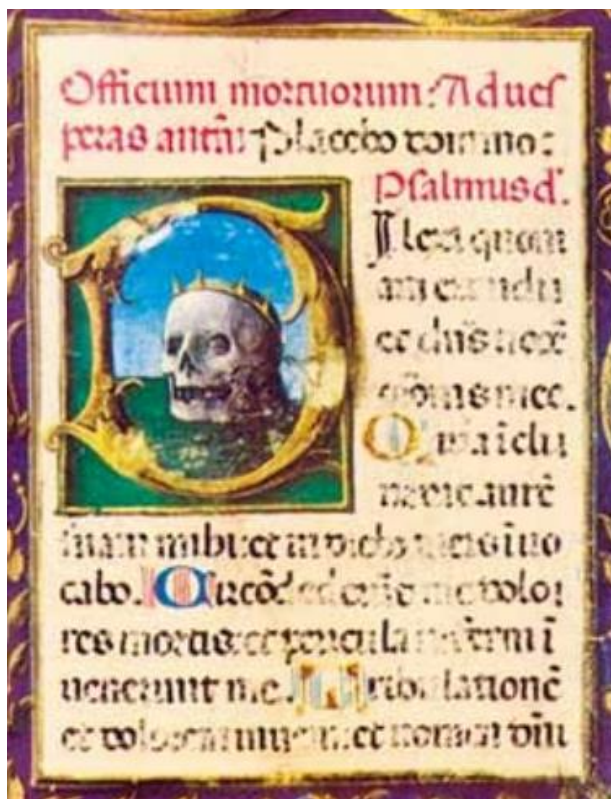 Officium mortuorum: Ad ues
peras antã: Placebo domino:
Psalmus d'.
Ilexi quoni
am exaudi
et dñs uocẽ
õnis mee.
Quia iclı
nauit aurẽ
suam mihi: et in diebs meis ĩuo
cabo. Circõdederũt me dolo
res mortis: et pericula inferni ĩ
uenerunt me. Tribulationẽ
et dolorem inueni: et nomen dñi